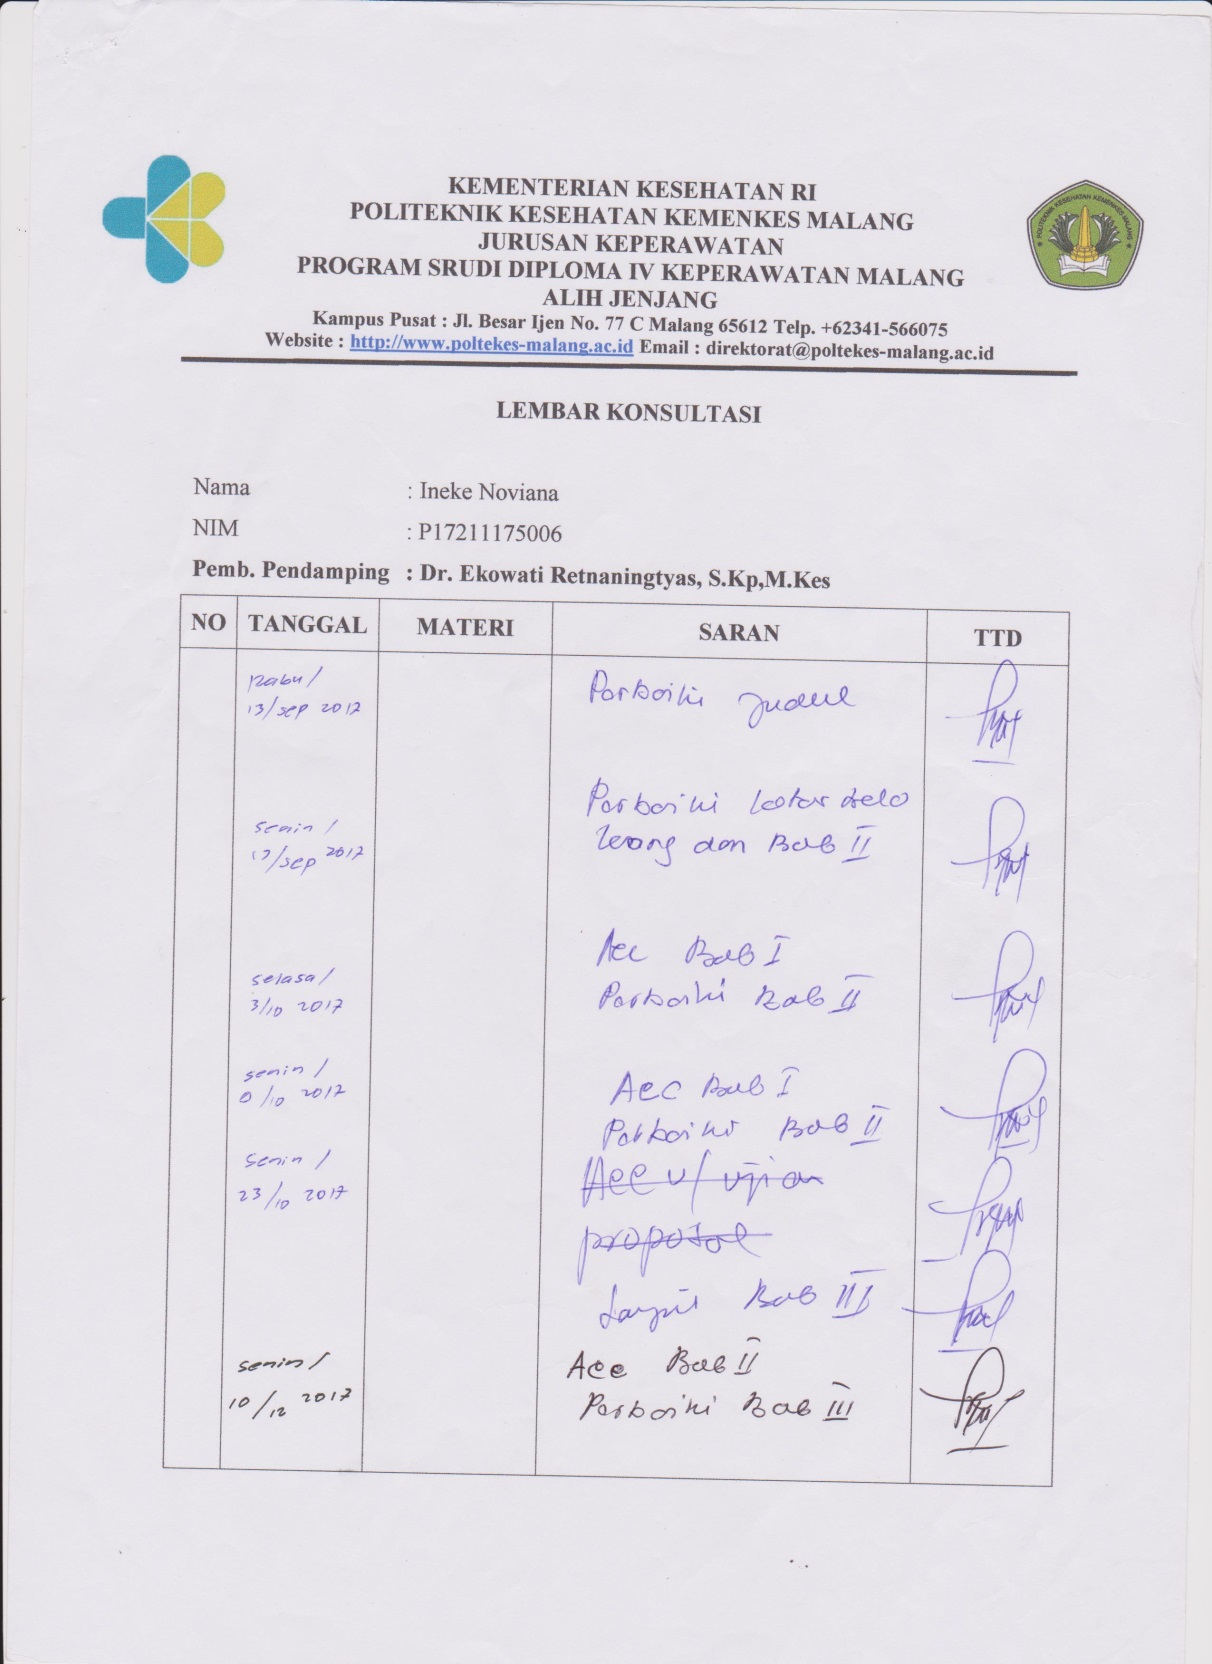 KEMENTERIAN KESEHATAN RI
POLITEKNIK KESEHATAN KEMENKES MALANG
JURUSAN KEPERAWATAN
PROGRAM SRUDI DIPLOMA IV KEPERAWATAN MALANG
ALIH JENJANG
Kampus Pusat : Jl. Besar Ijen No. 77 C Malang 65612 Telp. +62341-566075
Website : http://www.poltekes-malang.ac.id Email : direktorat@poltekes-malang.ac.id
POLITEKNIK KESEHATAN KEMENKES MALANG
LEMBAR KONSULTASI
Nama : Ineke Noviana
NIM : P17211175006
Pemb. Pendamping : Dr. Ekowati Retnaningtyas, S.Kp,M.Kes
NO TANGGAL MATERI SARAN TTD
Rabu/
13/sep 2017
Perbaiki Judul
Perbaiki latar bela
senin /
kang dan Bab II
/sep 2017
Acc Bab I
selasa/
Perbaiki Bab II
3/10 2017
senin /
Acc Bab I
/10 2017
Perbaiki Bab II
senin /
Acc u/ ujian
23/10 2017
proposal
Lanjut Bab III
senin /
Acc Bab II
10/12 2017
Perbaiki Bab III